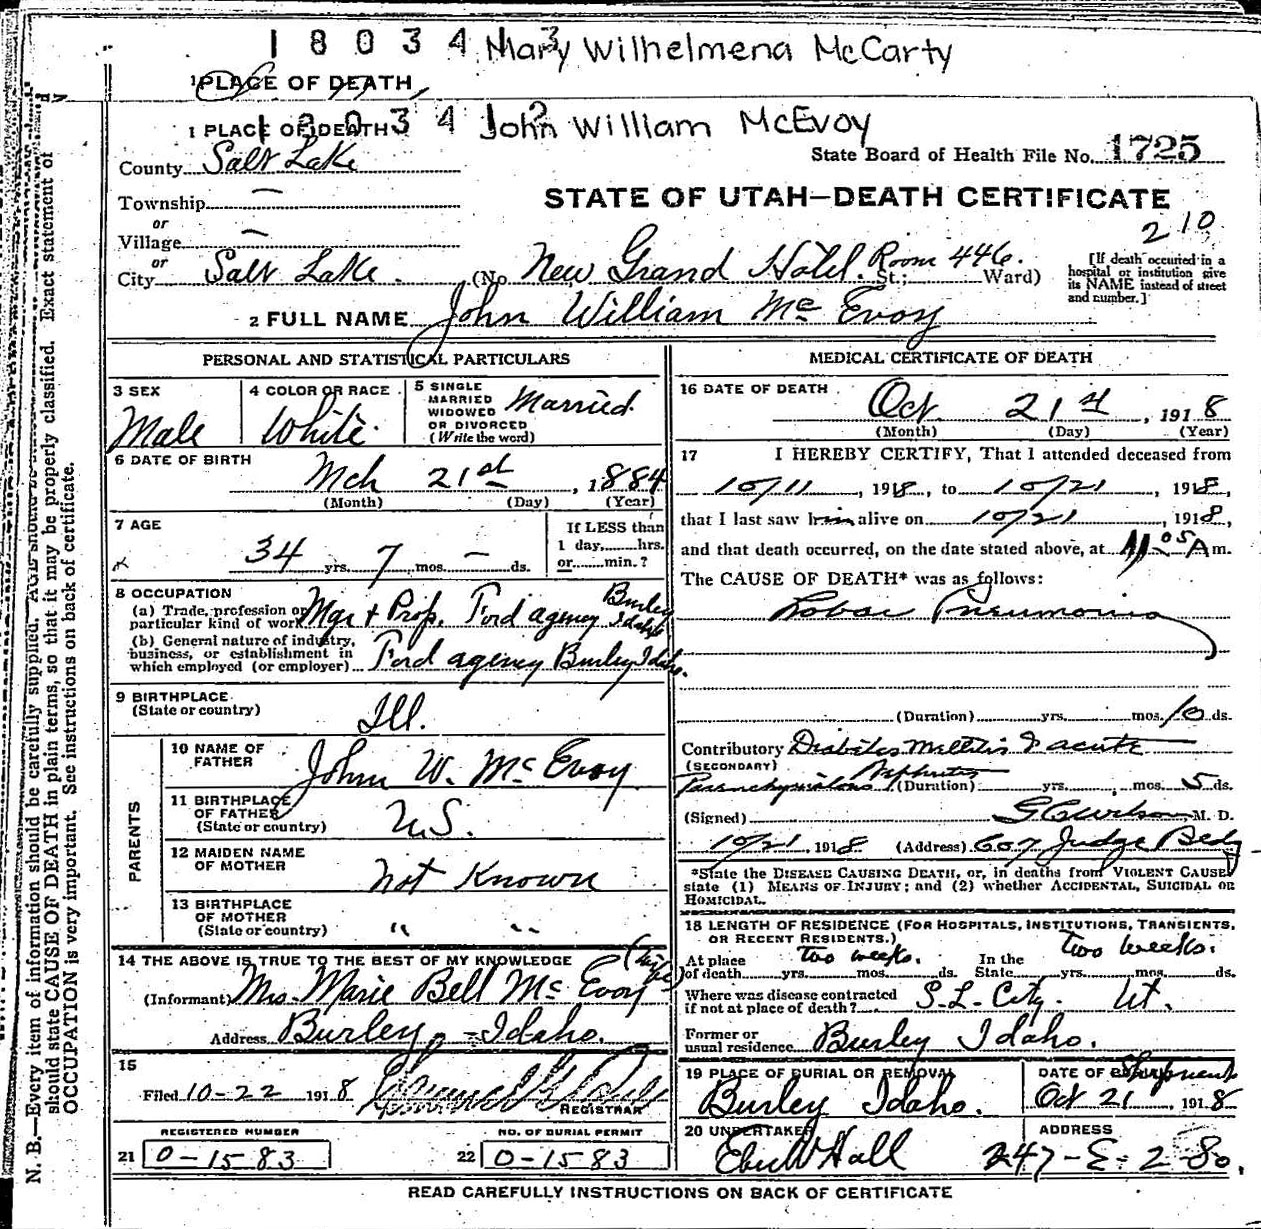 1 8 0 3 4 1 3 Mary Wilhelmena McCarty
1 PLACE OF DEATH
1 8 0 3 4 1 2 John William McEvoy
1 PLACE OF DEATH
County Salt Lake
State Board of Health File No. 1725
Township —
STATE OF UTAH—DEATH CERTIFICATE
or
Village —
210
or
City Salt Lake. (No. New Grand Hotel. Room 446. St.; Ward)
[If death occurred in a
hospital or institution give
its NAME instead of street
and number.]
2 FULL NAME John William Mc Evoy
PERSONAL AND STATISTICAL PARTICULARS
3 SEX
Male
4 COLOR OR RACE
White.
5 SINGLE
MARRIED
WIDOWED
OR DIVORCED
(Write the word)
Married.
6 DATE OF BIRTH
Mch 21st, 1884
(Month) (Day) (Year)
7 AGE
34 yrs. 7 mos. — ds.
If LESS than
1 day, hrs.
or min.?
8 OCCUPATION
(a) Trade, profession or
particular kind of work Mgr + Prop. Ford agency Burley Idaho
(b) General nature of industry,
business, or establishment in
which employed (or employer) Ford agency Burley Idaho.
9 BIRTHPLACE
(State or country)
Ill.
PARENTS
10 NAME OF
FATHER
John W. Mc Evoy
11 BIRTHPLACE
OF FATHER
(State or country)
U.S.
12 MAIDEN NAME
OF MOTHER
Not Known
13 BIRTHPLACE
OF MOTHER
(State or country)
" "
14 THE ABOVE IS TRUE TO THE BEST OF MY KNOWLEDGE
(Informant) Mrs. Marie Bell Mc Evoy (Wife)
Address Burley, Idaho.
15
Filed 10-22 1918
REGISTRAR
REGISTERED NUMBER
21 0-1583
NO. OF BURIAL PERMIT
22 0-1583
MEDICAL CERTIFICATE OF DEATH
16 DATE OF DEATH
Oct 21st, 1918
(Month) (Day) (Year)
17 I HEREBY CERTIFY, That I attended deceased from
10/11, 1918, to 10/21, 1918,
that I last saw him alive on 10/21, 1918,
and that death occurred, on the date stated above, at 11:05 A m.
The CAUSE OF DEATH* was as follows:
Lobar Pneumonia
(Duration) yrs. mos. 10 ds.
Contributory Diabetes Mellitis & acute
(SECONDARY)
Parenchymatous Nephritis
(Duration) yrs. mos. 5 ds.
(Signed) M. D.
10/21, 1918 (Address) 607 Judge Bldg
*State the DISEASE CAUSING DEATH, or, in deaths from VIOLENT CAUSES,
state (1) MEANS OF INJURY; and (2) whether ACCIDENTAL, SUICIDAL OR
HOMICIDAL.
18 LENGTH OF RESIDENCE (FOR HOSPITALS, INSTITUTIONS, TRANSIENTS,
OR RECENT RESIDENTS.)
At place
of death two weeks. yrs. mos. ds.
In the
State two weeks. yrs. mos. ds.
Where was disease contracted
if not at place of death? S. L. City. Ut.
Former or
usual residence Burley Idaho.
19 PLACE OF BURIAL OR REMOVAL
Burley Idaho.
DATE OF BURIAL Shipment
Oct 21, 1918
20 UNDERTAKER
Eber W Hall
ADDRESS
247-E-2-So.
READ CAREFULLY INSTRUCTIONS ON BACK OF CERTIFICATE
N. B.—Every item of information should be carefully supplied. AGE should be
Exact statement of
should state CAUSE OF DEATH in plain terms, so that it may be properly classified.
OCCUPATION is very important. See instructions on back of certificate.